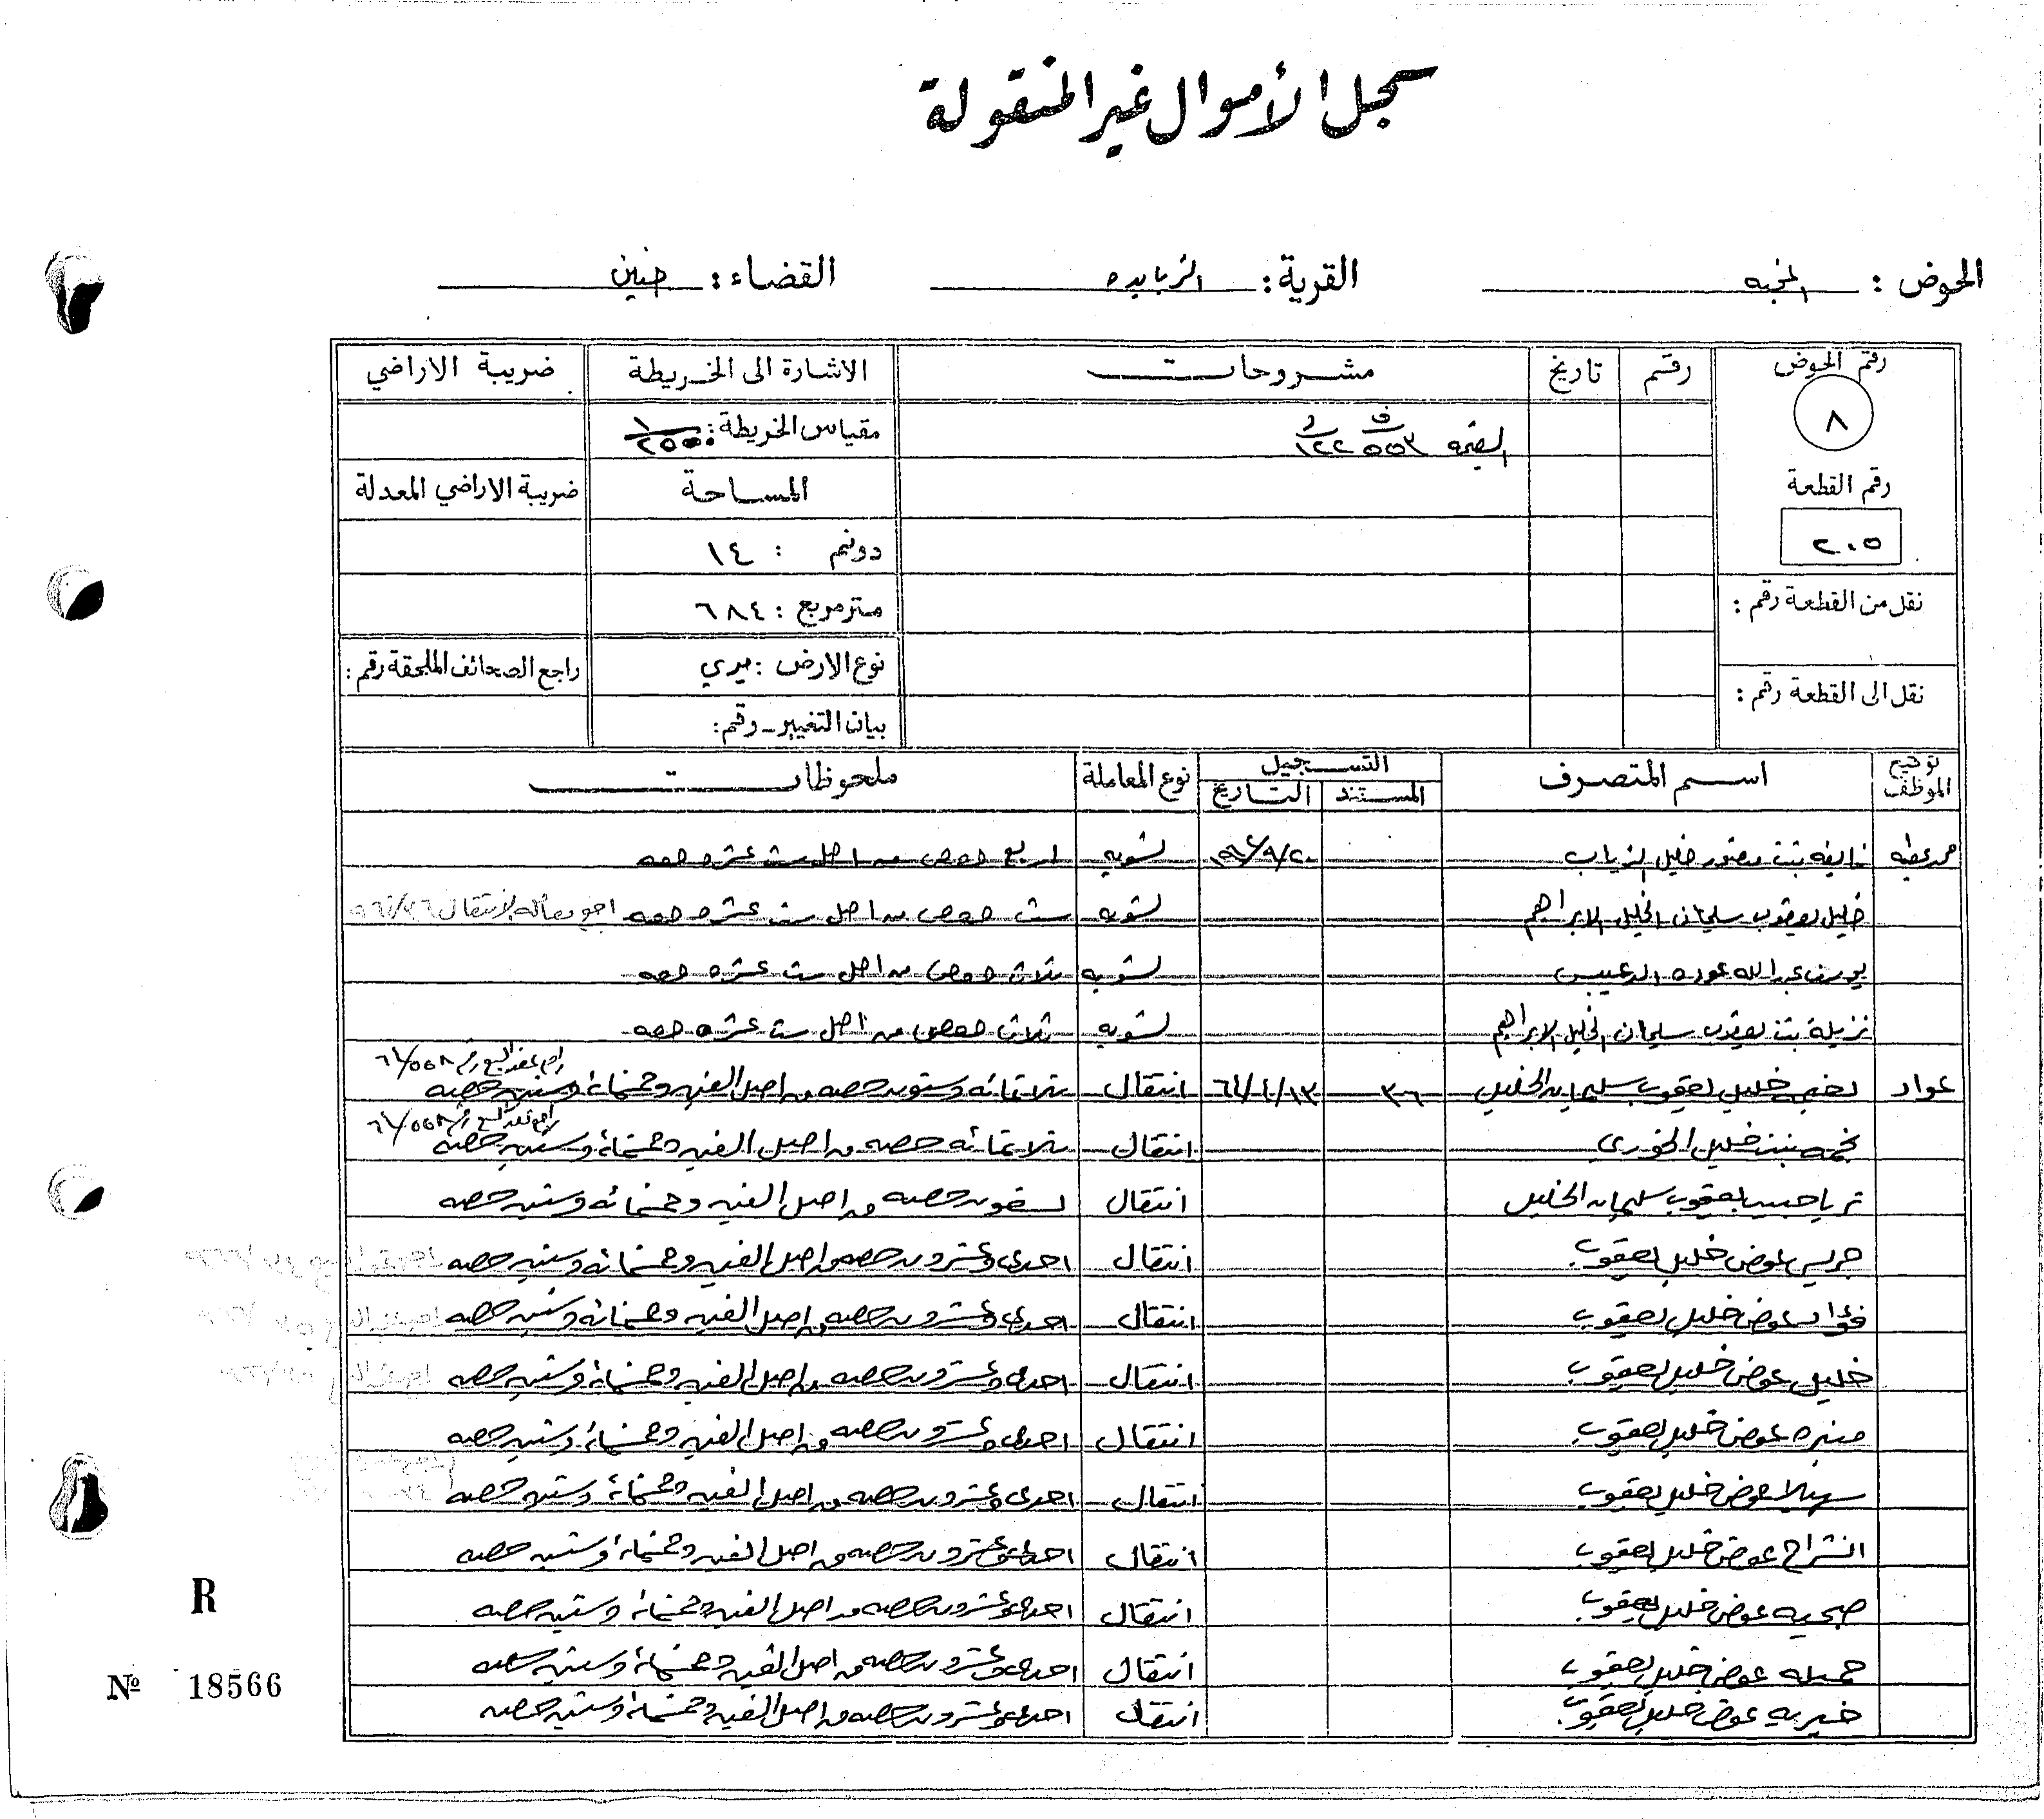 سجل الأموال غير المنقولة
الحوض : القرية : الزبابده القضاء : جنين
رقم الحوض رقم تاريخ مشروحات الاشارة الى الخريطة ضريبة الاراضي
٨ القيمة ٥٥٣ ١٢٢ مقياس الخريطة : ١/٢٥٠٠
رقم القطعة المساحة ضريبة الاراضي المعدلة
٢٠٥ دونم : ١٤
نقل من القطعة رقم : متر مربع : ٦٨٤
نوع الارض : ميري راجع الصحائف الملحقة رقم :
نقل الى القطعة رقم : بيان التغيير - رقم :
توقيع الموظف اسم المتصرف التسجيل نوع المعاملة ملحوظات
المستند التاريخ
بنت منصور خليل تسويه اربع حصص من اصل ست عشره حصه
خليل يعقوب سليمان الخليل الابراهيم تسويه ست حصص من اصل ست عشره حصه
يوسف عبدالله عوده تسويه ثلاث حصص من اصل ست عشره حصه
نزيلة بنت يعقوب سليمان الخليل الابراهيم تسويه ثلاث حصص من اصل ست عشره حصه
عواد خليل يعقوب سليمان الخليل ٣٦ ٦٤/٤/١٣ انتقال ثلاثمائه وستون حصه من اصل الفين وخمسمائة وستين حصه
نجمه بنت خليل الخوري انتقال ثلاثمائه حصه من اصل الفين وخمسمائة وستين حصه
ثريا حبيب يعقوب سليمان الخليل انتقال تسعون حصه من اصل الفين وخمسمائه وستين حصه
جريس عوض خليل يعقوب انتقال احدى وعشرون حصه من اصل الفين وخمسمائه وستين حصه
فؤاد عوض خليل يعقوب انتقال احدى وعشرون حصه من اصل الفين وخمسمائه وستين حصه
خليل عوض خليل يعقوب انتقال احدى وعشرون حصه من اصل الفين وخمسمائة وستين حصه
منيره عوض خليل يعقوب انتقال احدى وعشرون حصه من اصل الفين وخمسمائة وستين حصه
سهيلا عوض خليل يعقوب انتقال احدى وعشرون حصه من اصل الفين وخمسمائة وستين حصه
انشراح عوض خليل يعقوب انتقال احدى وعشرون حصه من اصل الفين وخمسمائة وستين حصه
صبحيه عوض خليل يعقوب انتقال احدى وعشرون حصه من اصل الفين وخمسمائة وستين حصه
R
جميله عوض خليل يعقوب انتقال احدى وعشرون حصه من اصل الفين وخمسمائة وستين حصه
Nº 18566
خيريه عوض خليل يعقوب انتقال احدى وعشرون حصه من اصل الفين وخمسمائة وستين حصه